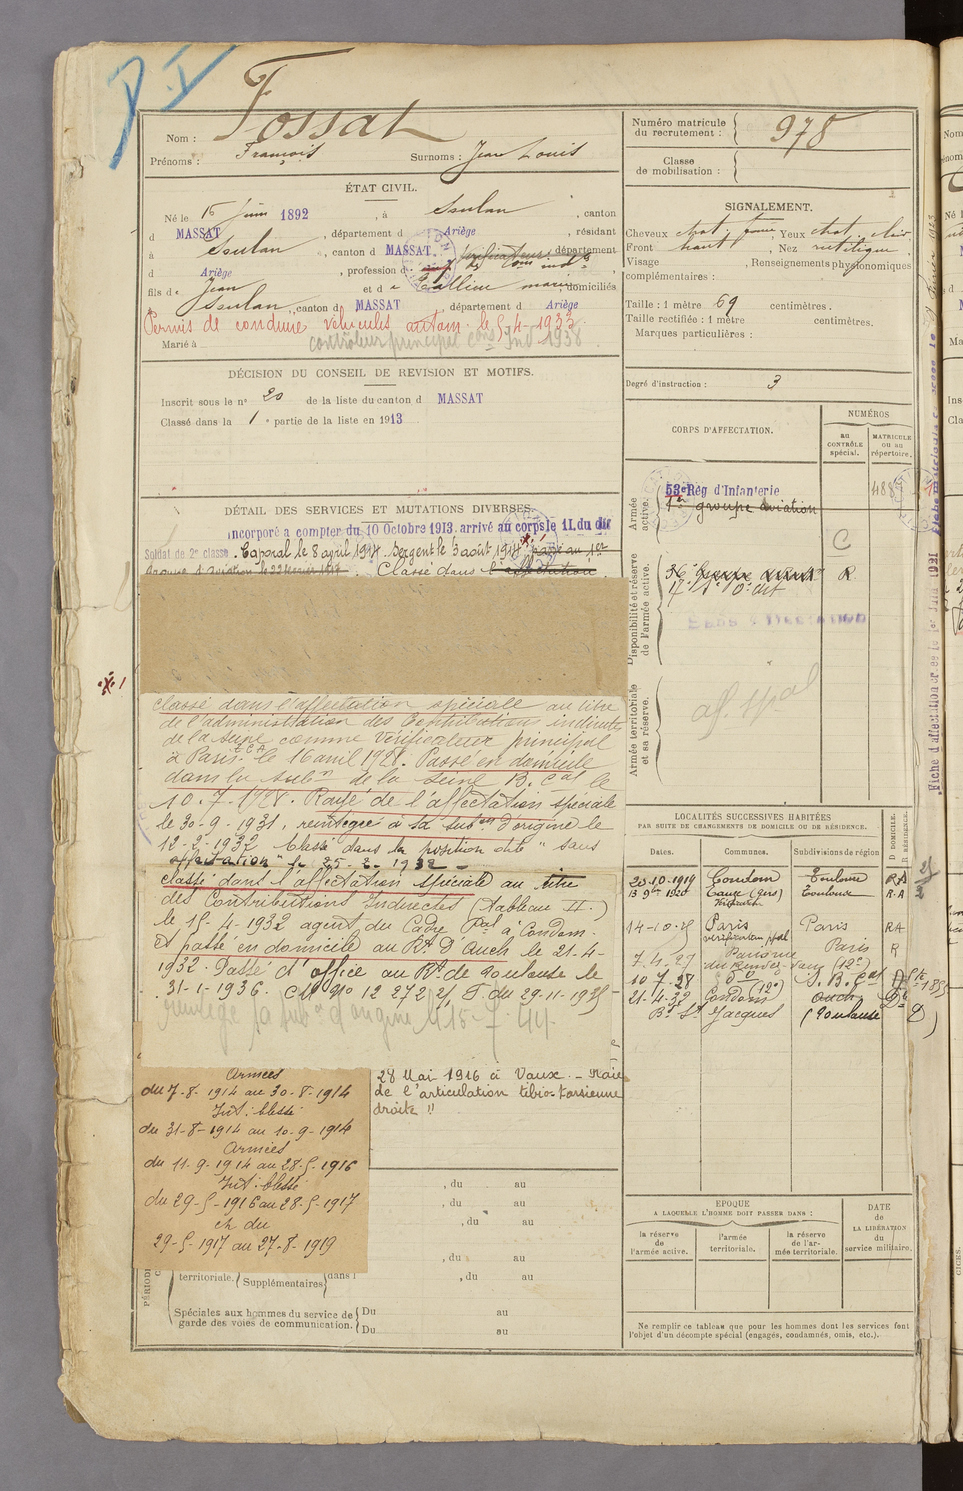 P I
Nom : Fossat
Prénoms : François Surnoms : Jean Louis
ÉTAT CIVIL.
Né le 15 juin 1892, à Soulan, canton
d MASSAT, département d Ariège, résidant
à Soulan, canton d MASSAT, département
d Ariège, profession d Vérificateur
fils d Jean et d Galline domiciliés
à Soulan, canton d MASSAT département d Ariège
Permis de conduire véhicules autom. le 5-4-1933
Marié à contrôleur principal Cons Ind 1938
DÉCISION DU CONSEIL DE REVISION ET MOTIFS.
Inscrit sous le n° 20 de la liste du canton d MASSAT
Classé dans la 1e partie de la liste en 1913
DÉTAIL DES SERVICES ET MUTATIONS DIVERSES.
incorporé a compter du 10 Octobre 1913. arrivé au corps le 11. du dit
Soldat de 2e classe. Caporal le 8 avril 1914. Sergent le 3 août 1914 passé au 1er
Groupe d'aviation le 22 février 1917. Classé dans l'affectation
classé dans l'affectation spéciale au titre
de l'administration des Contributions indirectes
de la Seine comme vérificateur principal
à Paris le 16 avril 1928. Passe en domicile
dans la subon de la Seine B. cal le
10-7-1928. Rayé de l'affectation spéciale
le 30-9-1931, réintégré à sa subon d'origine le
12-2-1932 Classé dans la position dite "sans
affectation" le 25-2-1932
classé dans l'affectation spéciale au titre
des Contributions Indirectes (Tableau II.)
le 15-4-1932 agent du Cadre Pal à Condom.
Et passé en domicile au Rt D'Auch le 21-4-
1932. Passé d'office au Rt de Toulouse le
31-1-1936. CM N° 12 272 2/ du 29-11-1935
réintégré sa subon d'origine le 15-7-44.
Armées
du 7-8-1914 au 30-8-1914
Int: blessé
du 31-8-1914 au 10-9-1914
Armées
du 11-9-1914 au 28-5-1916
Int: blessé
du 29-5-1916 au 28-5-1917
et du
29-5-1917 au 27-8-1919
28 Mai 1916 à Vaux. - Plaie
de l'articulation tibio-tarsienne
droite "
, du au
, du au
, du au
, du au
territoriale. Supplémentaires dans l , du au
Spéciales aux hommes du service de garde des voies de communication. Du au
Du au
Numéro matricule du recrutement : 978
Classe de mobilisation :
SIGNALEMENT.
Cheveux chat. , Yeux chat. clair
Front haut , Nez rectiligne
Visage , Renseignements physionomiques
complémentaires :
Taille : 1 mètre 69 centimètres.
Taille rectifiée : 1 mètre centimètres.
Marques particulières :
Degré d'instruction : 3
CORPS D'AFFECTATION.
NUMÉROS
au CONTRÔLE spécial.
MATRICULE ou au répertoire.
Armée active.
53e Rég d'Infanterie 488
1er groupe aviation
C
Disponibilité et réserve de l'armée active.
36e groupe R
SANS AFFECTATION
Armée territoriale et sa réserve.
aff. spal
LOCALITÉS SUCCESSIVES HABITÉES
PAR SUITE DE CHANGEMENTS DE DOMICILE OU DE RÉSIDENCE.
Dates. Communes. Subdivisions de région D DOMICILE. R RÉSIDENCE.
20-10-1919 Condom Toulouse RA
13 9bre 1920 Eauze (Gers) Toulouse R.A
14-10-25 Paris Paris RA
vérificateur ppal
7-4-27 Paris Paris R
10-7-28 do S. B. Cal
21-4-32 Condom Auch D
Bd St Jacques (Toulouse D)
EPOQUE
A LAQUELLE L'HOMME DOIT PASSER DANS :
la réserve de l'armée active.
l'armée territoriale.
la réserve de l'armée territoriale.
DATE de LA LIBÉRATION du service militaire.
Ne remplir ce tableau que pour les hommes dont les services font
l'objet d'un décompte spécial (engagés, condamnés, omis, etc.).